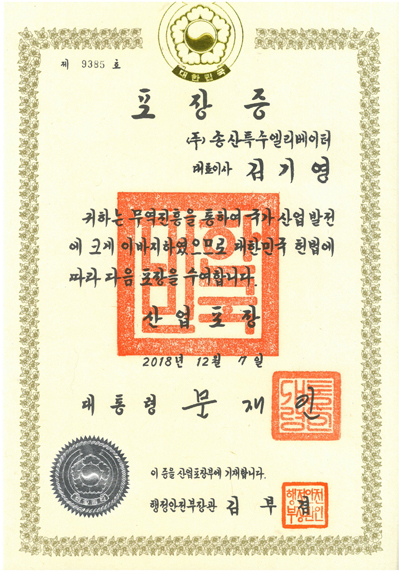 대한민국
제 9385 호
포장증
(주)송산특수엘리베이터
대표이사 김기영
귀하는 무역진흥을 통하여 국가 산업 발전
에 크게 이바지하였으므로 대한민국 헌법에
따라 다음 포장을 수여합니다.
산업포장
2018년 12월 7일
대통령 문재인
이 증을 산업포장부에 기재합니다.
행정안전부장관 김부겸
행정안전
부장관인